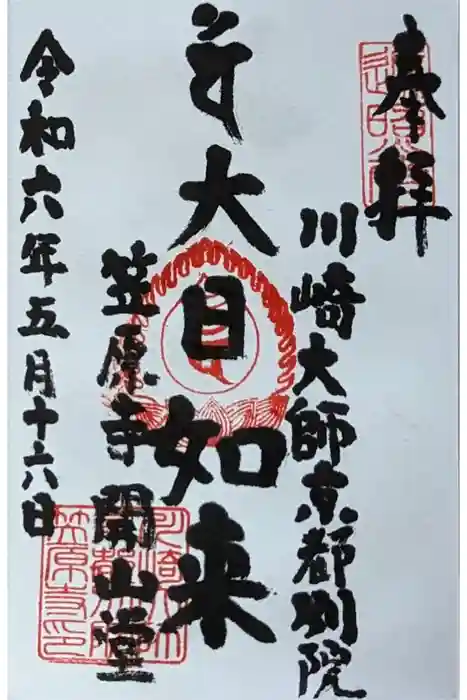 奉拝
川崎大師京都別院
大日如来
笠原寺開山堂
令和六年五月十六日
笠原寺印